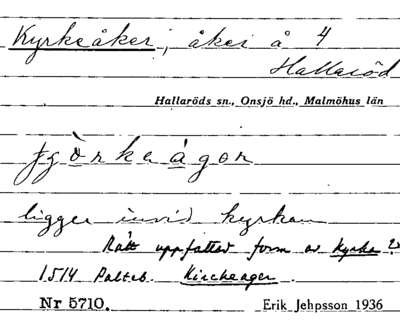 Kyrkeåker; åker å 4
Hallaröd
Hallaröds sn., Onsjö hd., Malmöhus län
ligger invid kyrkan
Rätt uppfattad form av kyrka?
1514 Palteb. Kircheager.
Nr 5710. Erik Jehpsson 1936